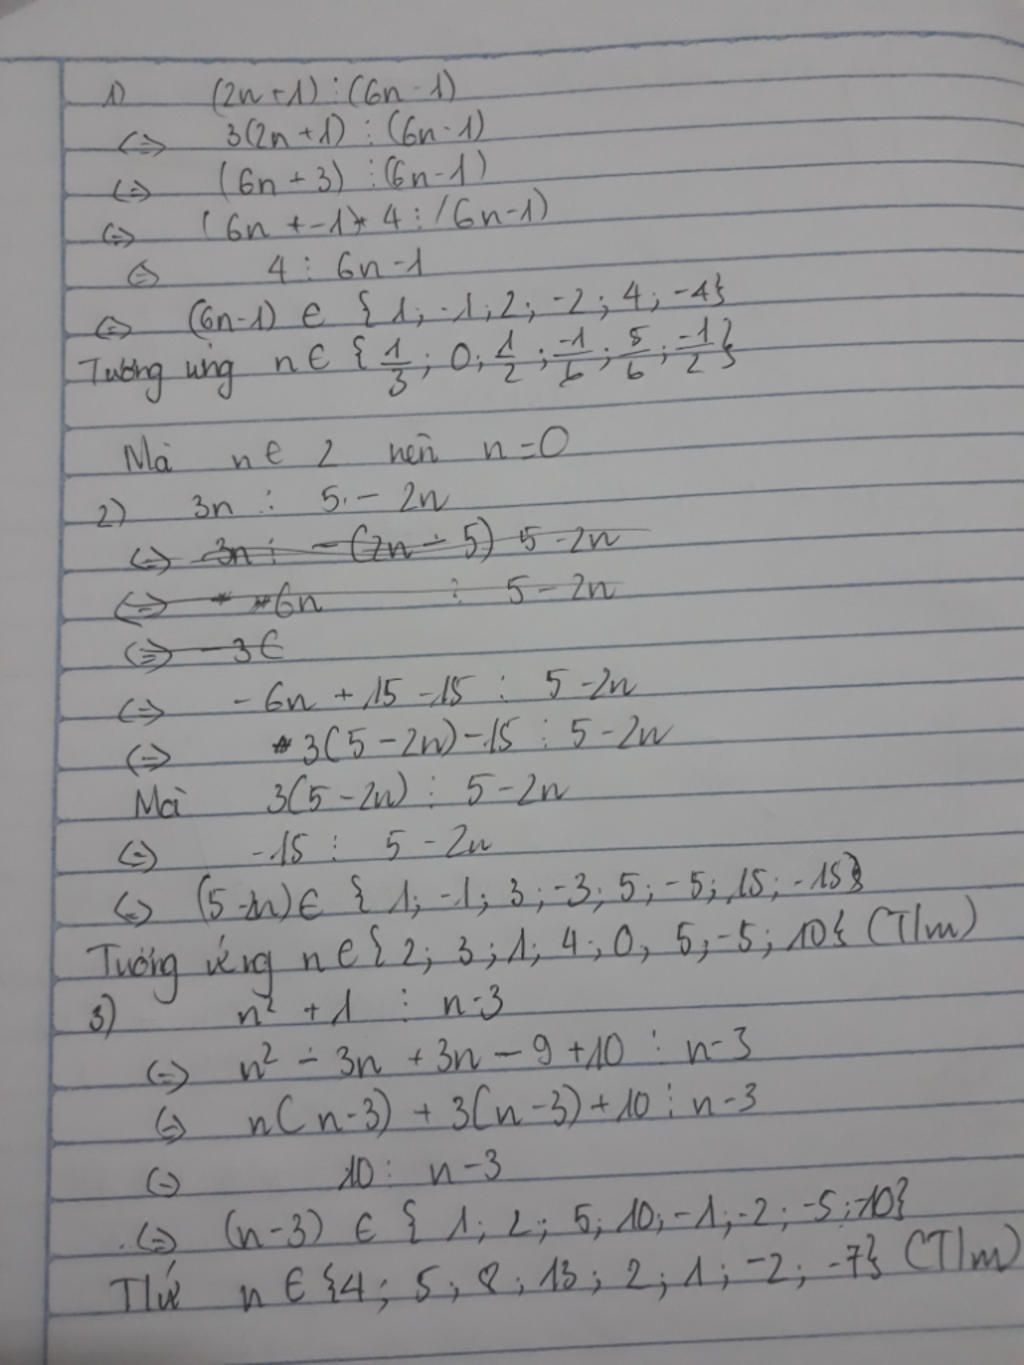 1) (2n+1) ⋮ (6n-1)
(=) 3(2n+1) ⋮ (6n-1)
(=) (6n + 3) ⋮ (6n-1)
(=) (6n + -1) + 4 ⋮ (6n-1)
(=) 4 ⋮ 6n-1
(=) (6n-1) ∈ { 1; -1; 2; -2; 4; -4}
Tương ứng n ∈ { 1/3; 0; 1/2; -1/6; 5/6; -1/2 }
Mà n ∈ Z nên n = 0
2) 3n ⋮ 5 - 2n
(=) 3n ⋮ - (2n - 5) 5 - 2n
(=) 6n ⋮ 5 - 2n
(=) - 3 ∈
(=) - 6n + 15 - 15 ⋮ 5 - 2n
(=) 3(5 - 2n) - 15 ⋮ 5 - 2n
Mà 3(5 - 2n) ⋮ 5 - 2n
(=) -15 ⋮ 5 - 2n
(=) (5-2n) ∈ { 1; -1; 3; -3; 5; -5; 15; -15}
Tương ứng n ∈ { 2; 3; 1; 4; 0; 5; -5; 10} (T/m)
3) n² + 1 ⋮ n-3
(=) n² - 3n + 3n - 9 + 10 ⋮ n-3
(=) n(n-3) + 3(n-3) + 10 ⋮ n-3
(=) 10 ⋮ n-3
(=) (n-3) ∈ { 1; 2; 5; 10; -1; -2; -5; -10}
n ∈ {4; 5; 8; 13; 2; 1; -2; -7} (T/m)